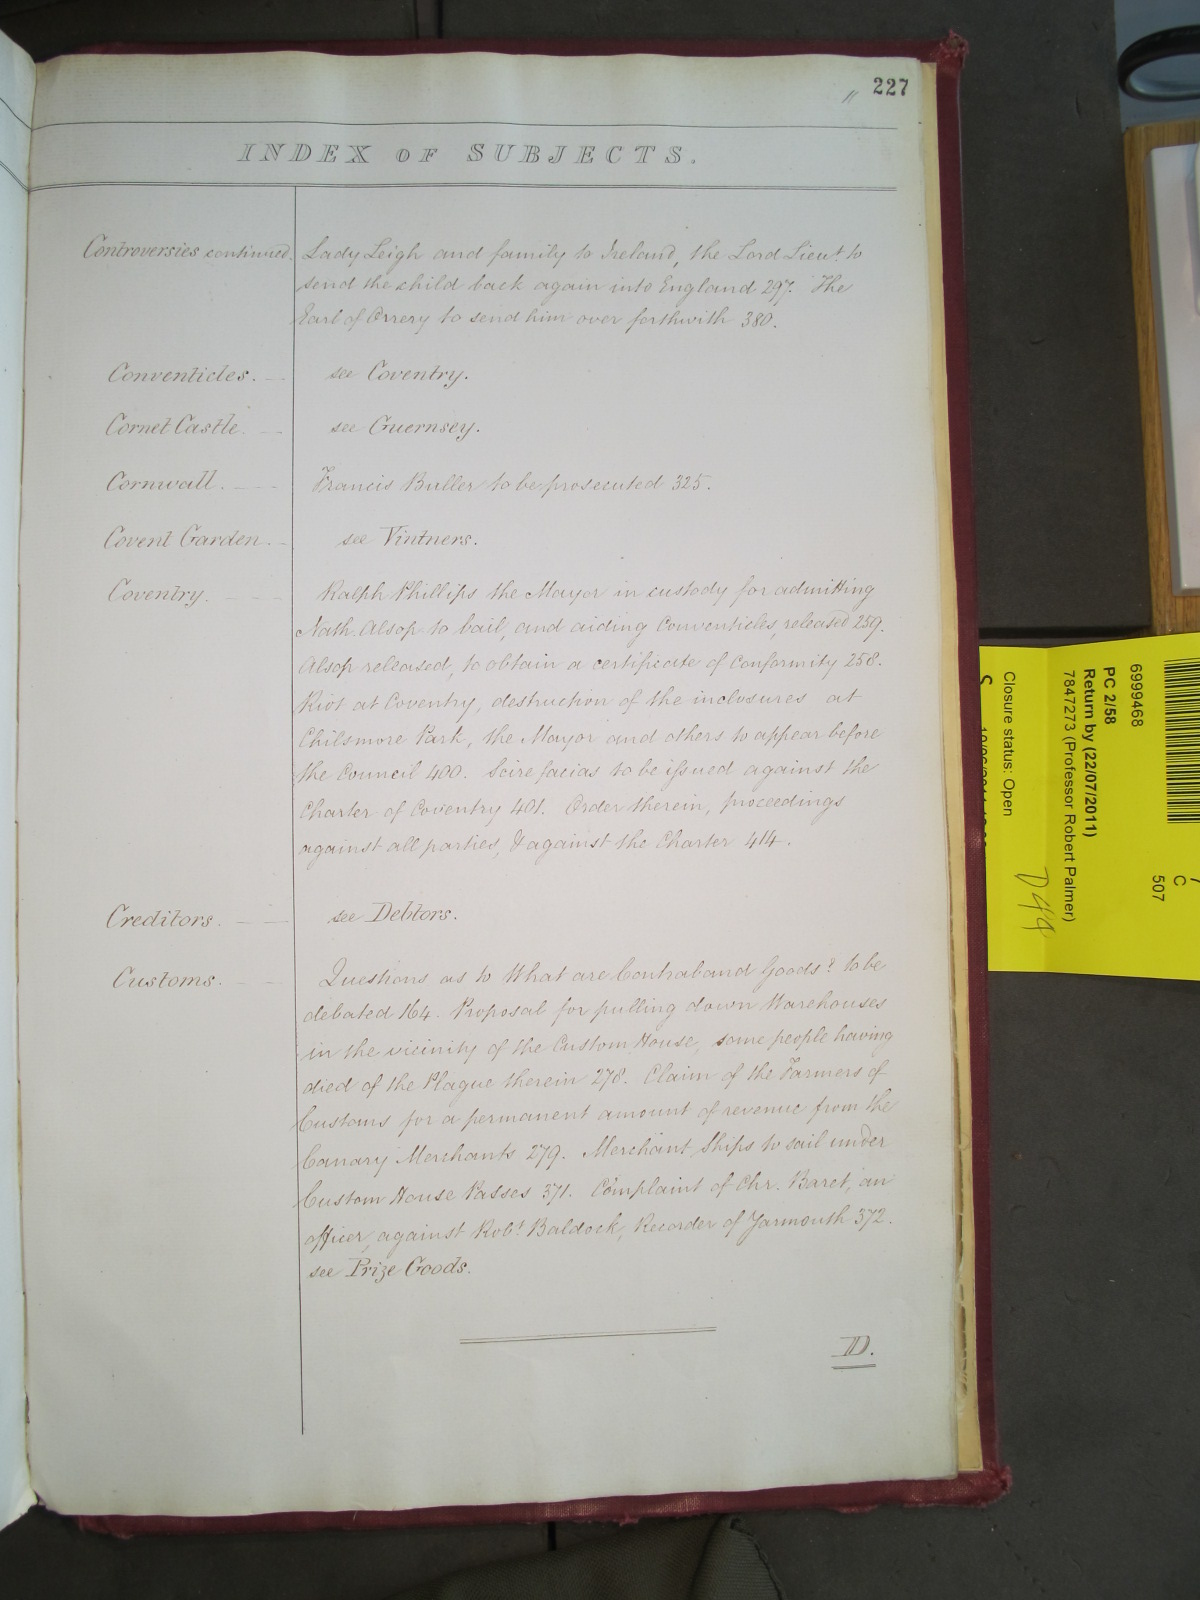 227
INDEX OF SUBJECTS.
Controversies continued. Lady Leigh and family to Ireland, the Lord Lieut. to
send the child back again into England 297. The
Earl of Orrery to send him over forthwith 380.
Conventicles. see Coventry.
Cornet Castle. see Guernsey.
Cornwall. Francis Buller to be prosecuted 325.
Covent Garden. see Vintners.
Coventry. Ralph Phillips the Mayor in custody for admitting
Nath. Alsop to bail, and aiding Conventicles, released 259.
Alsop released, to obtain a certificate of Conformity 258.
Riot at Coventry, destruction of the inclosures at
Chilsmore Park, the Mayor and others to appear before
the Council 400. Scire facias to be issued against the
Charter of Coventry 401. Order therein, proceedings
against all parties, & against the Charter 414.
Creditors. see Debtors.
Customs. Questions as to What are Contraband Goods? to be
debated 164. Proposal for pulling down Warehouses
in the vicinity of the Custom House, some people having
died of the Plague therein 278. Claim of the Farmers of
Customs for a permanent amount of revenue from the
Canary Merchants 279. Merchant Ships to sail under
Custom House Passes 371. Complaint of Chr. Baret, an
officer, against Robt. Baldock, Recorder of Yarmouth 372.
see Prize Goods.
D.
6999468
PC 2/58
Return by (22/07/2011)
7847273 (Professor Robert Palmer)
Closure status: Open
C
507
D49